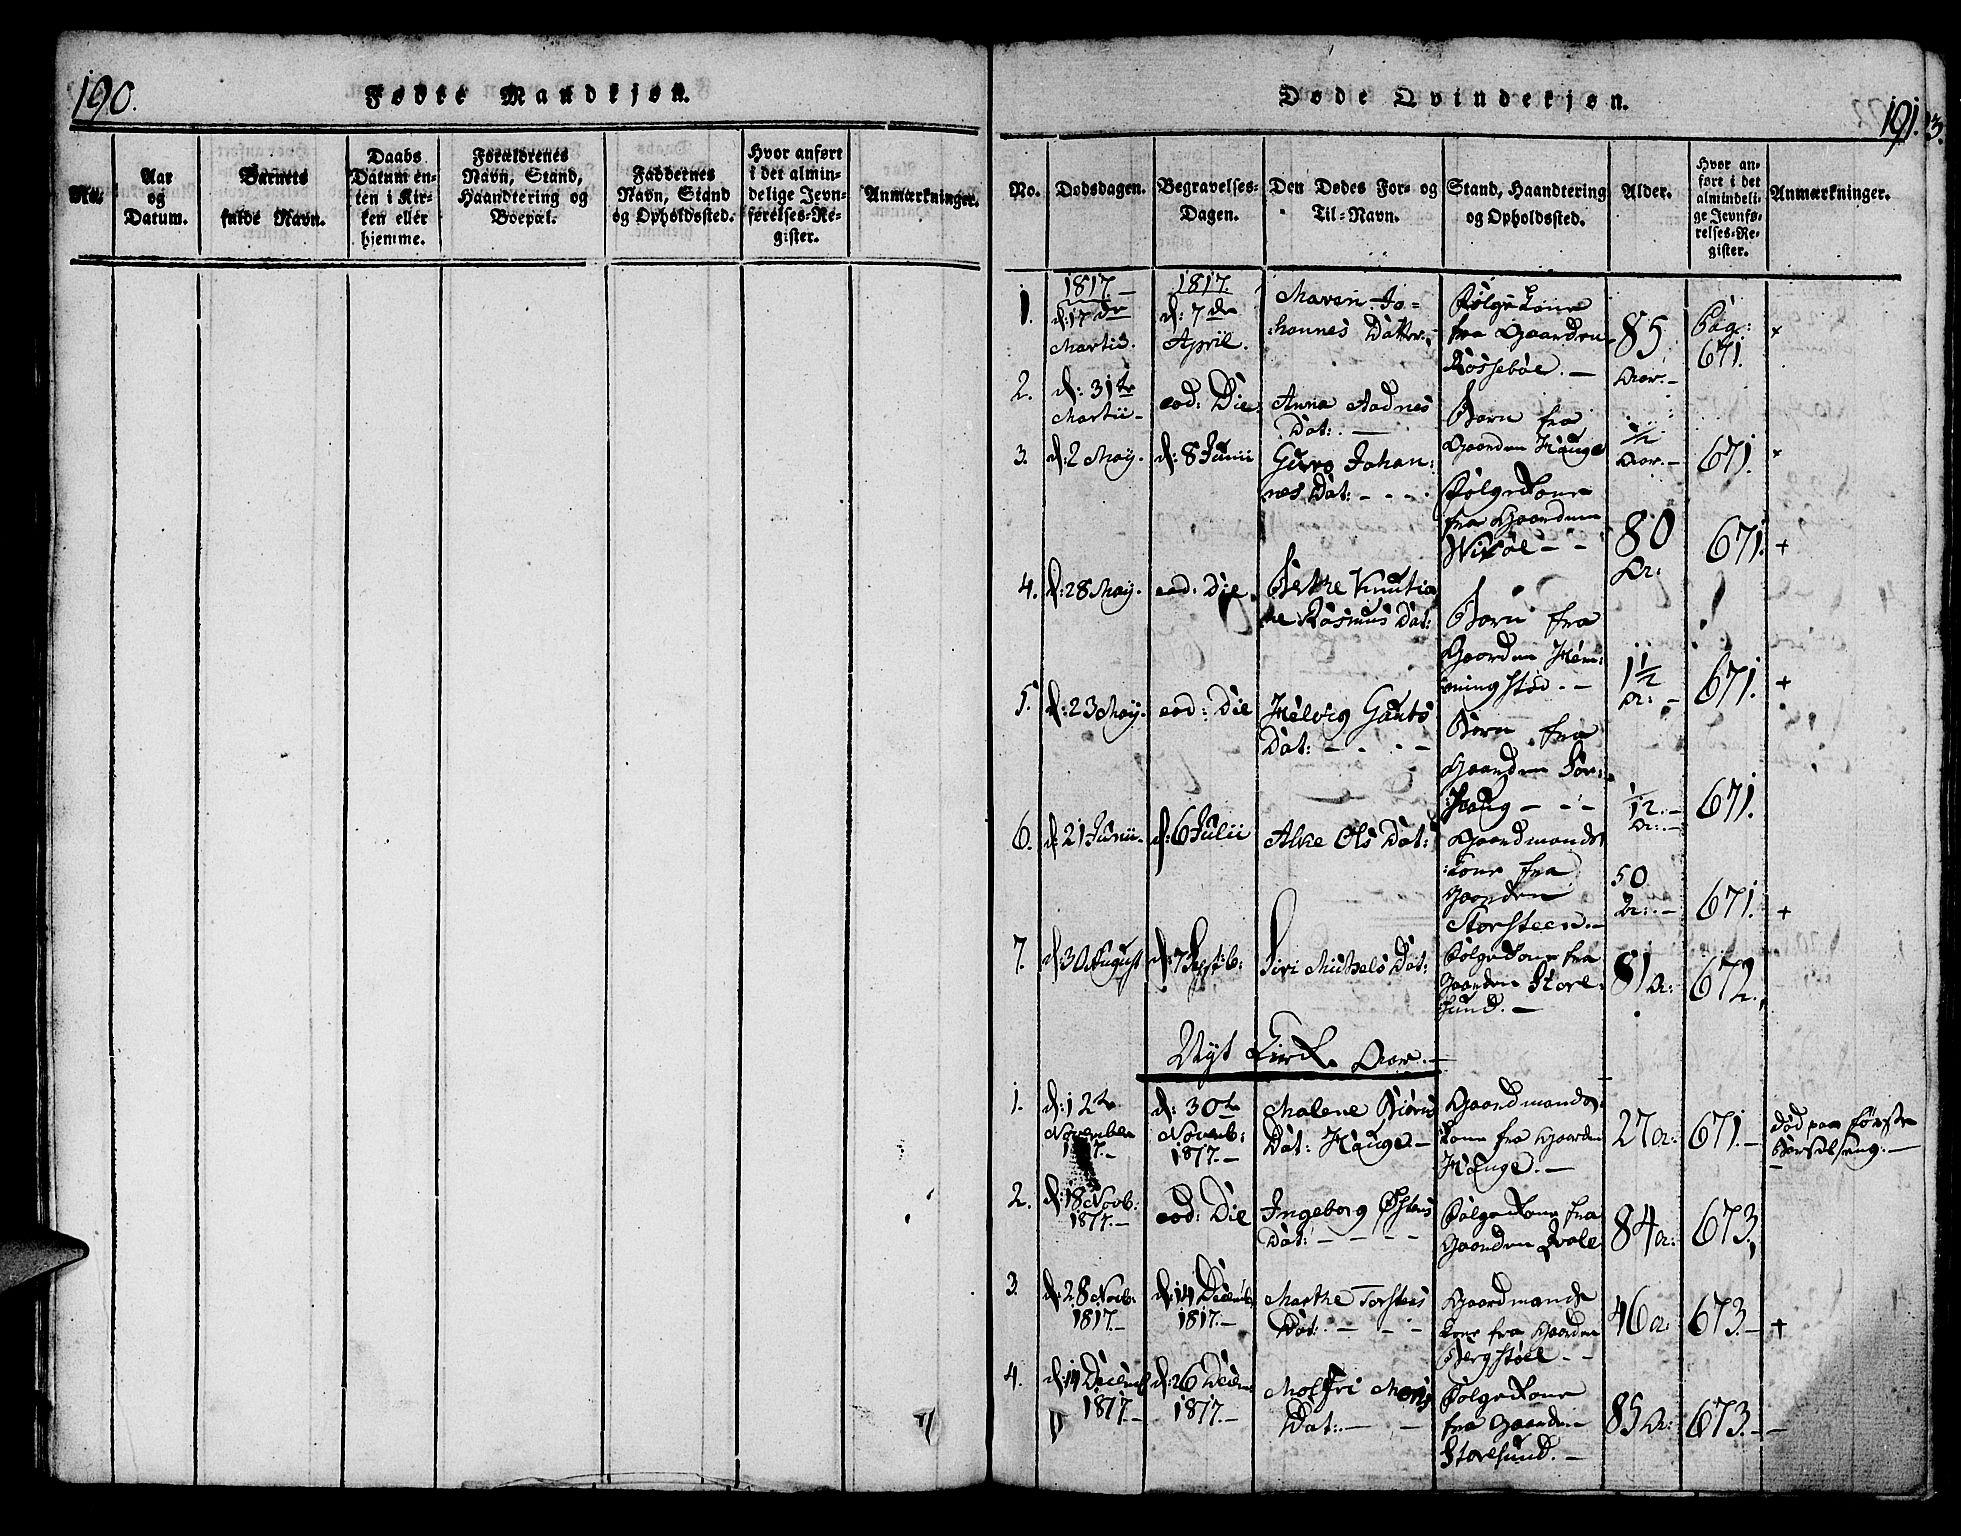 190.
Fødte Mandkjøn.
No.
Aar
og
Datum.
Barnets
fulde Navn.
Daabs
Datum en-
ten i Kir-
ken eller
hjemme.
Forældrenes
Navn, Stand,
Haandtering og
Boepæl.
Faddernes
Navn, Stand
og Opholdssted.
Hvor anført
i det almin-
delige Jevn-
førelses-Re-
gister.
Anmærkninger.
Døde Qvindekjøn.
191.
3.
No.
Dødsdagen.
Begravelses-
Dagen.
Den Dødes For- og
Til-Navn.
Stand, Haandtering
og Opholdssted.
Alder.
Hvor an-
ført i det
almindeli-
ge Jevnfø-
relses-Re-
gister.
Anmærkninger.
1.
1817.
d: 17de
Martii.
1817.
d: 7de
April.
Maren Jo-
hannes Datter.
Følgekone
fra Gaarden
Rossebøe.
85
Aar.
Pag:
671.
+
2.
d: 31te
Martii
eod: Die
Anna Aadnes
Dat:
Barn fra
Gaarden Hauge
1/2
Aar.
671.
+
3.
d: 2 May.
d: 8 Junii
Guro Johan:
nes Dat:
Følgekone
fra Gaarden
80
Ar:
671.
+
4.
d: 28 May.
eod: Die
Berthe Knutia
ne Rasmus Dat:
Barn fra
Gaarden Hem:
mingstød.
1 1/2
Ar:
671.
+
5.
d: 23 May.
eod: Die
Helvig Gauts
Dat:
Barn fra
Gaarden Sør:
Haug
1/12
Ar:
671.
6.
d: 21 Junii
d: 6 Julii
Alke Ols Dat:
Gaardmands
kone fra
Gaarden
Storsteen.
50
Ar:
671.
+
7.
d: 30 August
d: 7 Sept b:
Siri Michels Dat:
Følgekone fra
Gaarden Store:
sund.
81 Ar:
672.
Nyt Kirke Aar.
1.
d: 12te
November
1817.
d: 30te
Novemb:
1817.
Malene Biørns
Dat: Hauge.
Gaardmands
kone fra Gaarden
Hauge.
27 a:
671.
død paa første
Barselseng.
2.
d: 18 Novb:
1817.
eod: Die
Ingeborg Østens
Dat:
Følgekone fra
Gaarden Qvale
84 a:
673.
3.
d: 28 Novb:
1817.
d: 14 Decemb:
1817.
Marthe Torsteis
Dat:
Gaardmands
kone fra Gaarden
Bergstøel
46 a:
673.
+
4.
d: 14 Decemb
1817.
d: 26 Decem:
1817.
Dat:
Følgekone
fra Gaarden
Storesund.
85 Ar:
673.